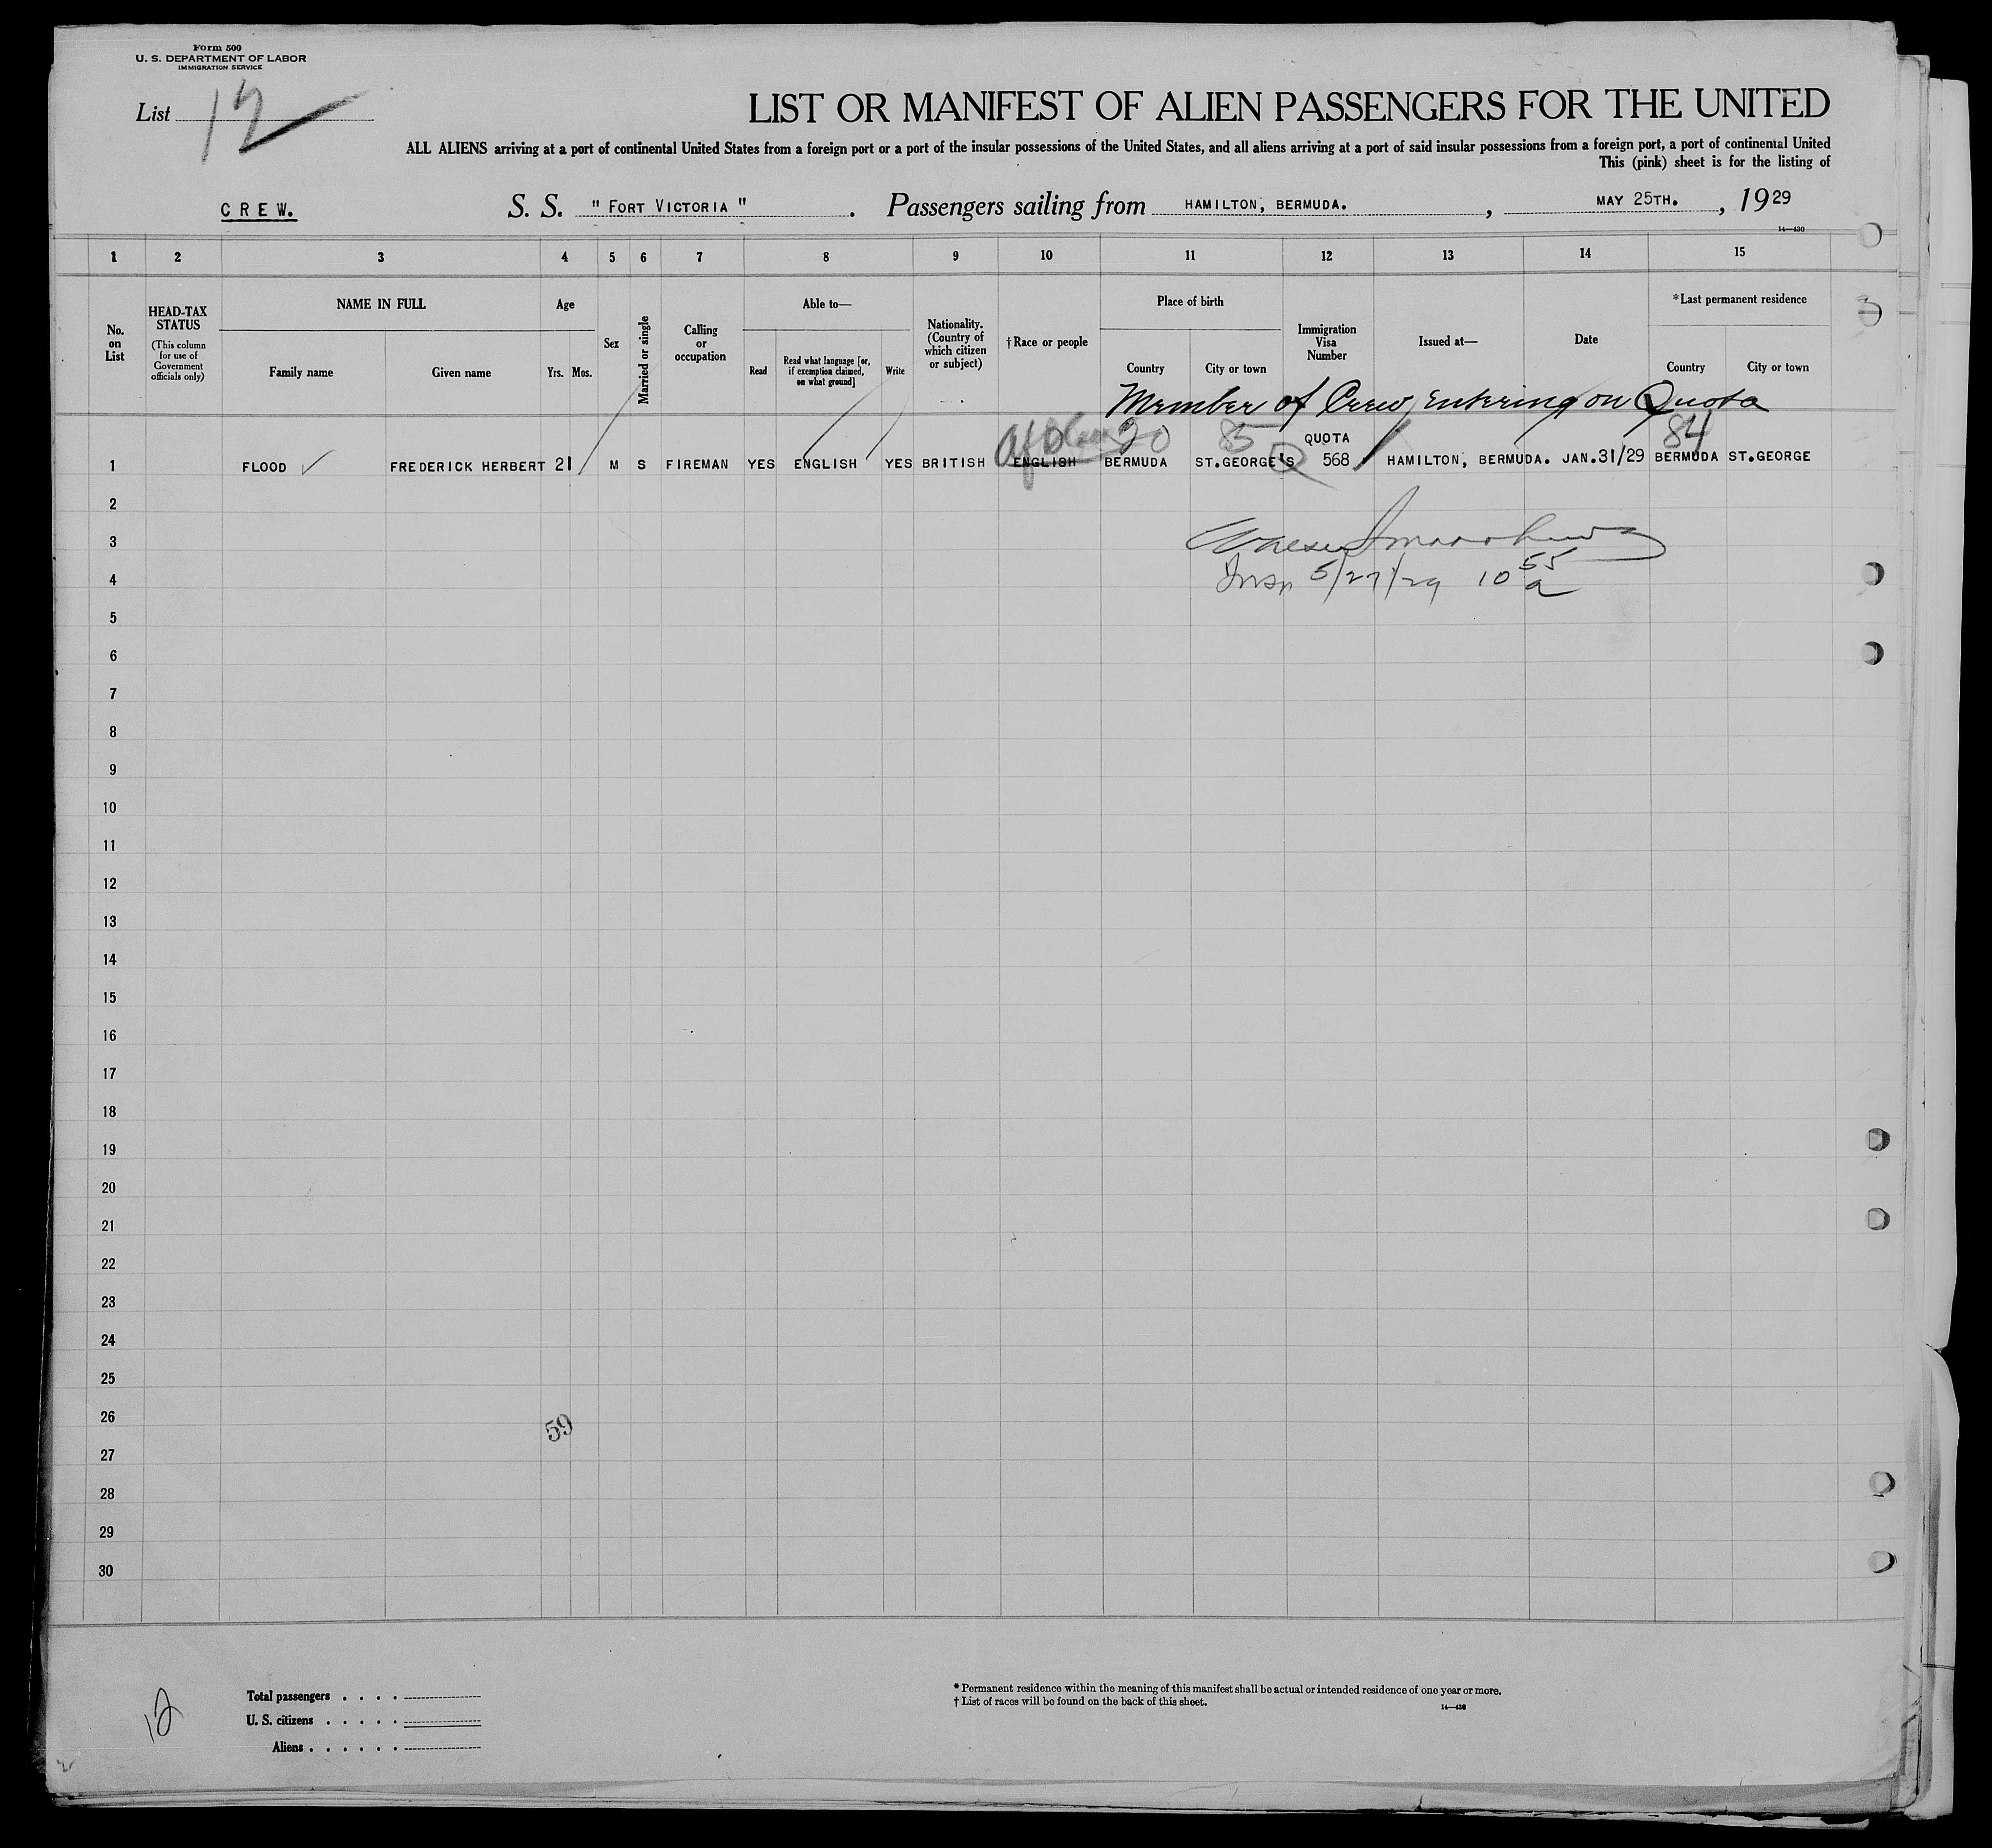 Form 500
U. S. DEPARTMENT OF LABOR
IMMIGRATION SERVICE
List 12
LIST OR MANIFEST OF ALIEN PASSENGERS FOR THE UNITED
ALL ALIENS arriving at a port of continental United States from a foreign port or a port of the insular possessions of the United States, and all aliens arriving at a port of said insular possessions from a foreign port, a port of continental United
This (pink) sheet is for the listing of
CREW. S. S. "FORT VICTORIA". Passengers sailing from HAMILTON, BERMUDA. , MAY 25TH. , 1929
14—430
1 2 3 4 5 6 7 8 9 10 11 12 13 14 15
No. on List
HEAD-TAX STATUS
(This column for use of Government officials only)
NAME IN FULL
Family name Given name
Age
Yrs. Mos.
Sex
Married or single
Calling or occupation
Able to—
Read
Read what language [or, if exemption claimed, on what ground]
Write
Nationality. (Country of which citizen or subject)
†Race or people
Place of birth
Country City or town
Immigration Visa Number
Issued at—
Date
*Last permanent residence
Country City or town
Member of Crew, Entering on Quota
90 85 QUOTA 84
1 FLOOD ✓ FREDERICK HERBERT 21 M S FIREMAN YES ENGLISH YES BRITISH ENGLISH BERMUDA ST.GEORGE'S 568 HAMILTON, BERMUDA. JAN.31/29 BERMUDA ST.GEORGE
2
3
4
Insp 5/27/29 10 55 a
5
6
7
8
9
10
11
12
13
14
15
16
17
18
19
20
21
22
23
24
25
26
59
27
28
29
30
12
Total passengers . . . .
U. S. citizens . . . . .
Aliens . . . . . .
* Permanent residence within the meaning of this manifest shall be actual or intended residence of one year or more.
† List of races will be found on the back of this sheet.
14—430